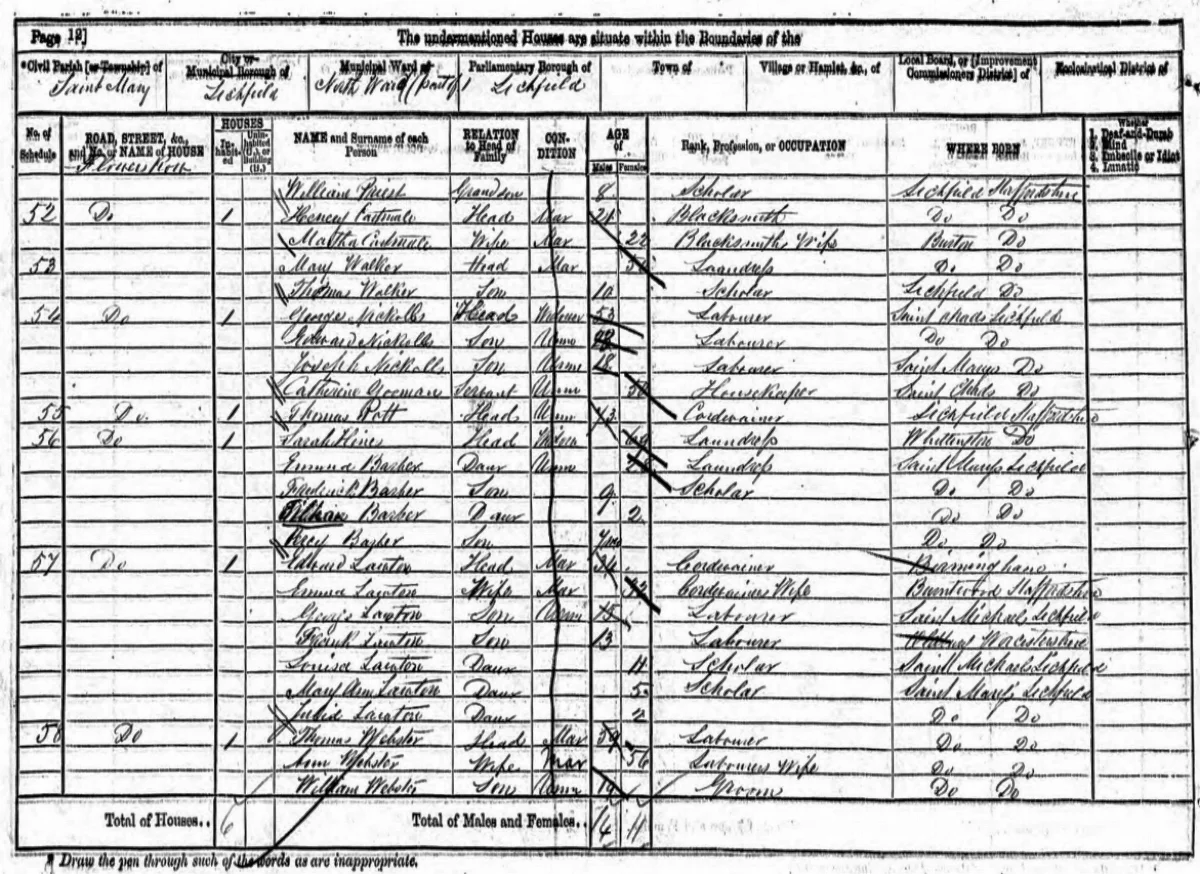 Page 12]
The undermentioned Houses are situate within the Boundaries of the
*Civil Parish [or Township] of
Saint Mary
City or Municipal Borough of
Lichfield
Municipal Ward of
North Ward (Part of)
Parliamentary Borough of
Lichfield
Town of
Village or Hamlet, &c., of
Local Board, or [Improvement Commissioners District] of
Ecclesiastical District of
No. of Schedule
ROAD, STREET, &c., and No. or NAME of HOUSE
HOUSES
Inhabited
Uninhabited (U.), or Building (B.)
NAME and Surname of each Person
RELATION to Head of Family
CONDITION
AGE of
Males Females
Rank, Profession, or OCCUPATION
WHERE BORN
Whether
1. Deaf-and-Dumb
2. Blind
3. Imbecile or Idiot
4. Lunatic
Flowers Row
William Priest Grandson 8 Scholar Lichfield Staffordshire
52 Do 1 Head Mar 21 Blacksmith Do Do
Martha Wife Mar 22 Blacksmiths Wife Burton Do
53 Mary Walker Head Mar Laundress Do Do
Thomas Walker Son 10 Scholar Lichfield Do
54 Do 1 George Nickolls Head Widower 53 Labourer Saint Chads Lichfield
Edward Nickolls Son Unm Labourer Do Do
Joseph Nickolls Son Unm 18 Labourer Saint Marys Do
Catherine Servant Unm Housekeeper Saint Chads Do
55 Do 1 Thomas Pott Head Unm 73 Cordwainer Lichfield Staffordshire
56 Do 1 Sarah Hines Head Widow Laundress Whittington Do
Emma Barber Daur Unm Laundress Saint Marys Lichfield
Frederick Barber Son 9 Scholar Do Do
Barber Daur 2 Do Do
Percy Barber Son Do Do
57 Do 1 Edward Lawton Head Mar Cordwainer Birmingham
Emma Lawton Wife Mar Cordwainers Wife Burntwood Staffordshire
George Lawton Son Unm 15 Labourer Saint Michaels Lichfield
Frank Lawton Son 13 Labourer Worcestershire
Louisa Lawton Daur 11 Scholar Saint Michaels Lichfield
Mary Ann Lawton Daur 5 Scholar Saint Marys Lichfield
Lawton Daur 2 Do Do
58 Do 1 Thomas Webster Head Mar 59 Labourer Do Do
Ann Webster Wife Mar 56 Labourers Wife Do Do
William Webster Son Unm 19 Groom Do Do
Total of Houses.. 6
Total of Males and Females.. 14 11
Draw the pen through such of the words as are inappropriate.